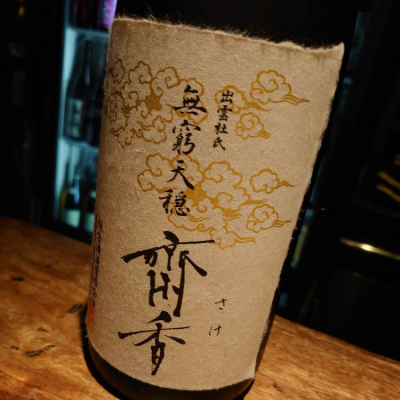 出雲杜氏
無窮天穏
齋香
さけ